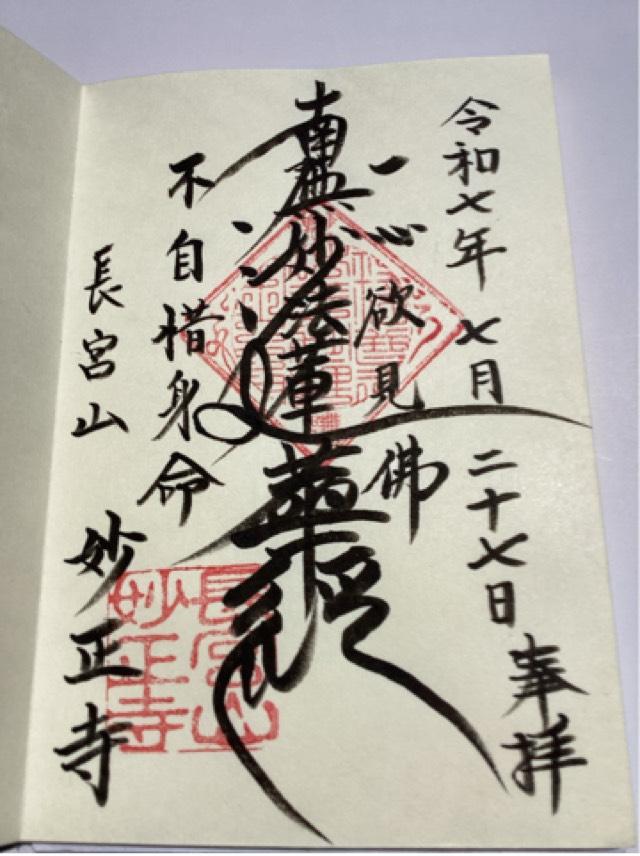 令和七年七月二十七日 奉拝
一心欲見佛
南無妙法蓮華経
不自惜身命
長宮山
妙正寺
長宮山
妙正寺